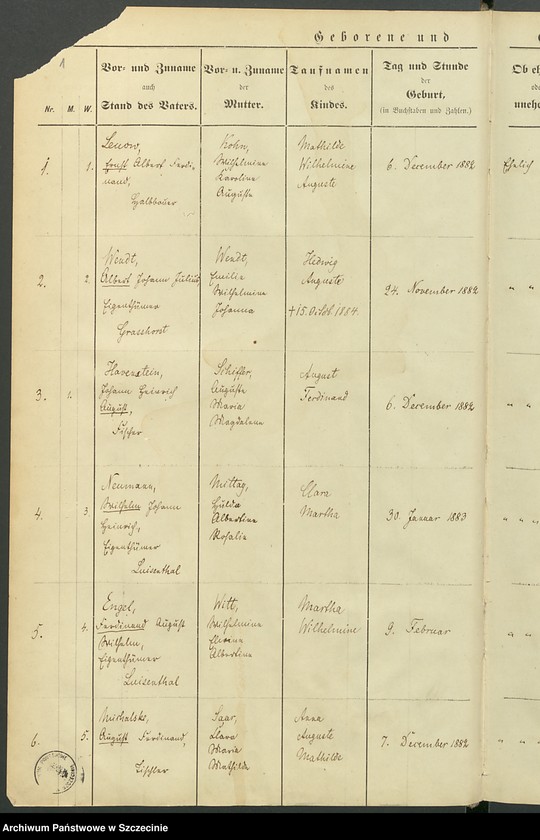 Geborene und
1
Nr.
M.
W.
Vor- und Zuname
auch
Stand des Vaters.
Vor- u. Zuname
der
Mutter.
Taufnamen
des
Kindes.
Tag und Stunde
der
Geburt,
(in Buchstaben und Zahlen.)
Ob eh
unehe
1.
1.
Lenow,
Ernst Albert Ferdi-
nand,
Halbbauer
Kohn,
Wilhelmine
Karoline
Auguste
Mathilde
Wilhelmine
Auguste
6. December 1882
Ehelich
2.
2.
Wendt,
Albert Johann Julius
Eigenthümer
Grasshorst
Wendt,
Emilie
Wilhelmine
Johanna
Hedwig
Auguste
+ 15. Octob. 1884.
24. November 1882
" "
3.
1.
Havenstein,
Johann Heinrich
August,
Fischer
Schiffler,
Auguste
Maria
Magdalena
August
Ferdinand
6. December 1882
" "
4.
3.
Neumann,
Wilhelm Johann
Heinrich,
Eigenthümer
Luisenthal
Mittag,
Hulda
Albertine
Rosalie
Clara
Martha
30. Januar 1883
" "
5.
4.
Engel,
Ferdinand August
Wilhelm,
Eigenthümer
Luisenthal
Witt,
Wilhelmine
Albertine
Martha
Wilhelmine
9. Februar
" "
6.
5.
Michalski,
August Ferdinand,
Tischler
Saar,
Clara
Maria
Mathilde
Anna
Auguste
Mathilde
7. December 1882
" "
Archiwum Państwowe w Szczecinie